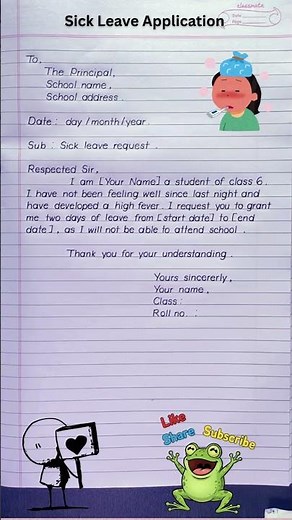 Sick Leave Application
classmate
Date
Page
To,
The Principal,
School name,
School address.
Date : day/month/year.
Sub : Sick leave request.
Respected Sir,
I am [Your Name] a student of class 6.
I have not been feeling well since last night and
have developed a high fever. I request you to grant
me two days of leave from [start date] to [end
date], as I will not be able to attend school.
Thank you for your understanding.
Yours sincerely,
Your name,
Class :
Roll no. :
Like
Share Subscribe